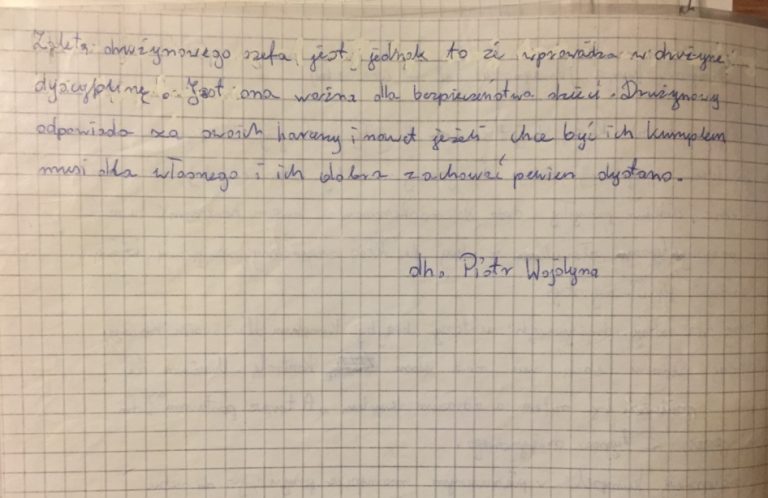 Zaletą drużynowego szefa jest jednak to że wprowadza w drużynę
dyscyplinę. Jest ona ważna dla bezpieczeństwa dzieci. Drużynowy
odpowiada za swoich harcerzy i nawet jeżeli chce być ich kumplem
musi dla własnego i ich dobra zachować pewien dystans.
dh. Piotr Wojdyna